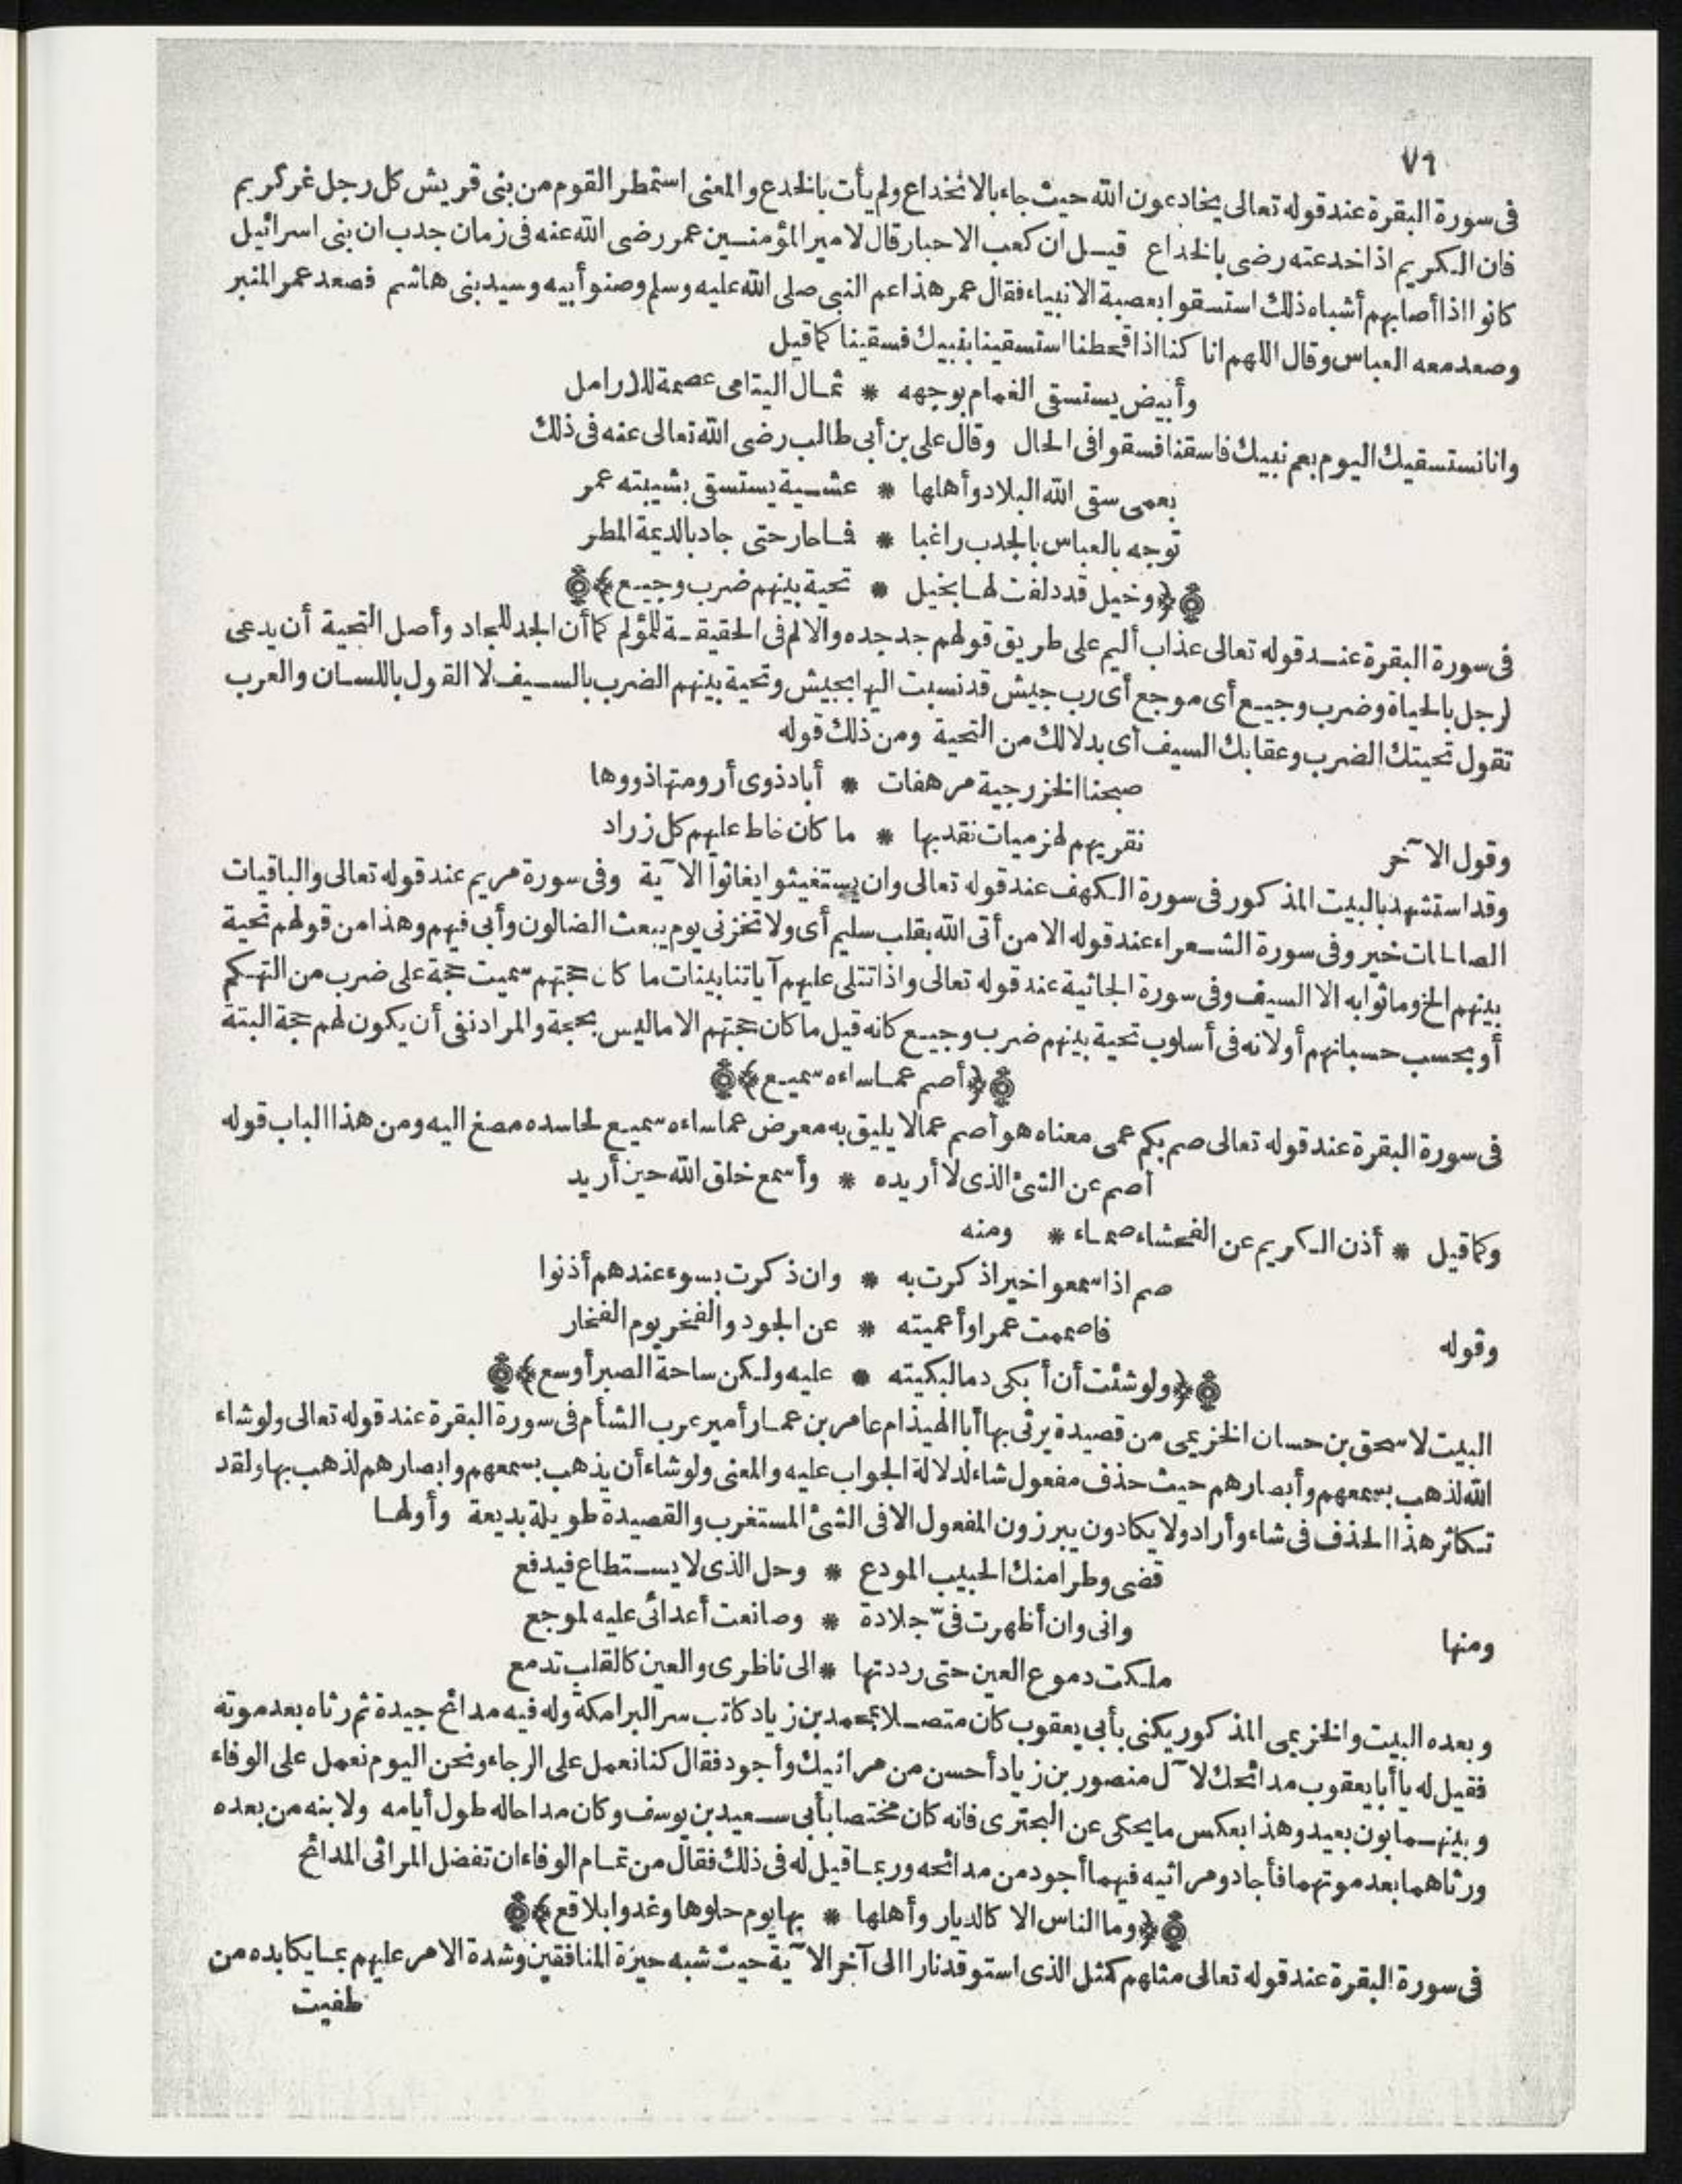 ٧٦
فى سورة البقرة عند قوله تعالى يخادعون الله حيث جاء بالانخداع ولم يأت بالخدع والمعنى استمطر القوم من بنى قريش كل رجل غر كريم
فان الكريم اذا خدعته رضى بالخداع قيل ان كعب الاحبار قال لامير المؤمنين عمر رضى الله عنه فى زمان جدب ان بنى اسرائيل
كانوا اذا أصابهم أشباه ذلك استسقوا بعصبة الانبياء فقال عمر هذا عم النبى صلى الله عليه وسلم وصنو أبيه وسيد بنى هاشم فصعد عمر المنبر
وصعد معه العباس وقال اللهم انا كنا اذا قحطنا استسقينا بنبيك فسقينا كما قيل
وأبيض يستسقى الغمام بوجهه * ثمال اليتامى عصمة للارامل
وانا نستسقيك اليوم بعم نبيك فاسقنا فسقوا فى الحال وقال على بن أبى طالب رضى الله تعالى عنه فى ذلك
بعمى سقى الله البلاد وأهلها * عشية يستسقى بشيبته عمر
توجه بالعباس بالجدب راغبا * فما حار حتى جاد بالديمة المطر
﴿وخيل قد دلفت لها بخيل * تحية بينهم ضرب وجيع﴾
فى سورة البقرة عند قوله تعالى عذاب أليم على طريق قولهم جد جده والالم فى الحقيقة للمؤلم كما أن الجد للجاد وأصل التحية أن يدعى
لرجل بالحياة وضرب وجيع أى موجع أى رب جيش قد نسبت اليها بجيش وتحية بينهم الضرب بالسيف لا القول باللسان والعرب
تقول تحيتك الضرب وعقابك السيف أى بدلا لك من التحية ومن ذلك قوله
صبحنا الخزرجية مرهفات * أباد ذوى أرومتها ذووها
وقول الآخر نقريهم لهزميات نقد بها * ما كان خاط عليهم كل زراد
وقد استشهد بالبيت المذكور فى سورة الكهف عند قوله تعالى وان يستغيثوا يغاثوا الآية وفى سورة مريم عند قوله تعالى والباقيات
الصالحات خير وفى سورة الشعراء عند قوله الا من أتى الله بقلب سليم أى ولا تخزنى يوم يبعث الضالون وأبى فيهم وهذا من قولهم تحية
بينهم الخ وما ثوابه الا السيف وفى سورة الجاثية عند قوله تعالى واذا تتلى عليهم آياتنا بينات ما كان حجتهم سميت حجة على ضرب من التهكم
أو بحسب حسبانهم أو لانه فى أسلوب تحية بينهم ضرب وجيع كانه قيل ما كان حجتهم الا ما ليس بحجة والمراد نفى أن يكون لهم حجة البتة
﴿أصم عما ساءه سميع﴾
فى سورة البقرة عند قوله تعالى صم بكم عمى معناه هو أصم عما لا يليق به معرض عما ساءه سميع لحاسده مصغ اليه ومن هذا الباب قوله
أصم عن الشئ الذى لا أريده * وأسمع خلق الله حين أريد
وكما قيل * أذن الكريم عن الفحشاء صماء * ومنه
صم اذا سمعوا خيرا ذكرت به * وان ذكرت بسوء عندهم أذنوا
وقوله فاصممت عمرا وأعميته * عن الجود والفخر يوم الفخار
﴿ولو شئت أن أبكى دما لبكيته * عليه ولكن ساحة الصبر أوسع﴾
البيت لاسحق بن حسان الخزيمى من قصيدة يرثى بها أبا الهيذام عامر بن عمار أمير عرب الشأم فى سورة البقرة عند قوله تعالى ولو شاء
الله لذهب بسمعهم وأبصارهم حيث حذف مفعول شاء لدلالة الجواب عليه والمعنى ولو شاء أن يذهب بسمعهم وابصارهم لذهب بها ولقد
تكاثر هذا الحذف فى شاء وأراد ولا يكادون يبرزون المفعول الا فى الشئ المستغرب والقصيدة طويلة بديعة وأولها
قضى وطرا منك الحبيب المودع * وحل الذى لا يستطاع فيدفع
ومنها وانى وان أظهرت فىّ جلادة * وصانعت أعدائى عليه لموجع
ملكت دموع العين حتى رددتها * الى ناظرى والعين كالقلب تدمع
وبعده البيت والخزيمى المذكور يكنى بأبى يعقوب كان متصلا بمحمد بن زياد كاتب سر البرامكة وله فيه مدائح جيدة ثم رثاه بعد موته
فقيل له يا أبا يعقوب مدائحك لآل منصور بن زياد أحسن من مراثيك وأجود فقال كنا نعمل على الرجاء ونحن اليوم نعمل على الوفاء
وبينهما بون بعيد وهذا بعكس ما يحكى عن البحترى فانه كان مختصا بأبى سعيد بن يوسف وكان مداحا له طول أيامه ولابنه من بعده
ورثاهما بعد موتهما فأجاد ومراثيه فيهما أجود من مدائحه وربما قيل له فى ذلك فقال من تمام الوفاء ان تفضل المراثى المدائح
﴿وما الناس الا كالديار وأهلها * بها يوم حلوها وغدوا بلاقع﴾
فى سورة البقرة عند قوله تعالى مثلهم كمثل الذى استوقد نارا الى آخر الآية حيث شبه حيرة المنافقين وشدة الامر عليهم بما يكابده من
طفيت